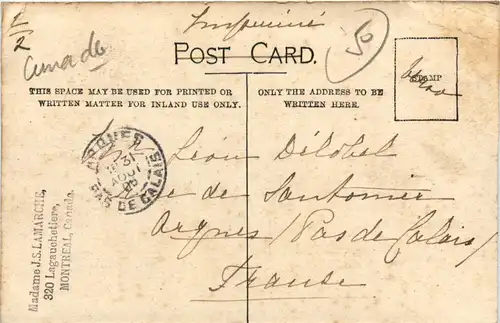 1/2
Imprimé
Canada
50
POST CARD.
STAMP
THIS SPACE MAY BE USED FOR PRINTED OR
WRITTEN MATTER FOR INLAND USE ONLY.
ONLY THE ADDRESS TO BE
WRITTEN HERE.
ARQUES
31
AOUT
PAS DE CALAIS
Léon Délobel
de
Arques / Pas de Calais /
France
Madame J.S. LAMARCHE,
320 Lagauchetiere,
MONTREAL, Canada.